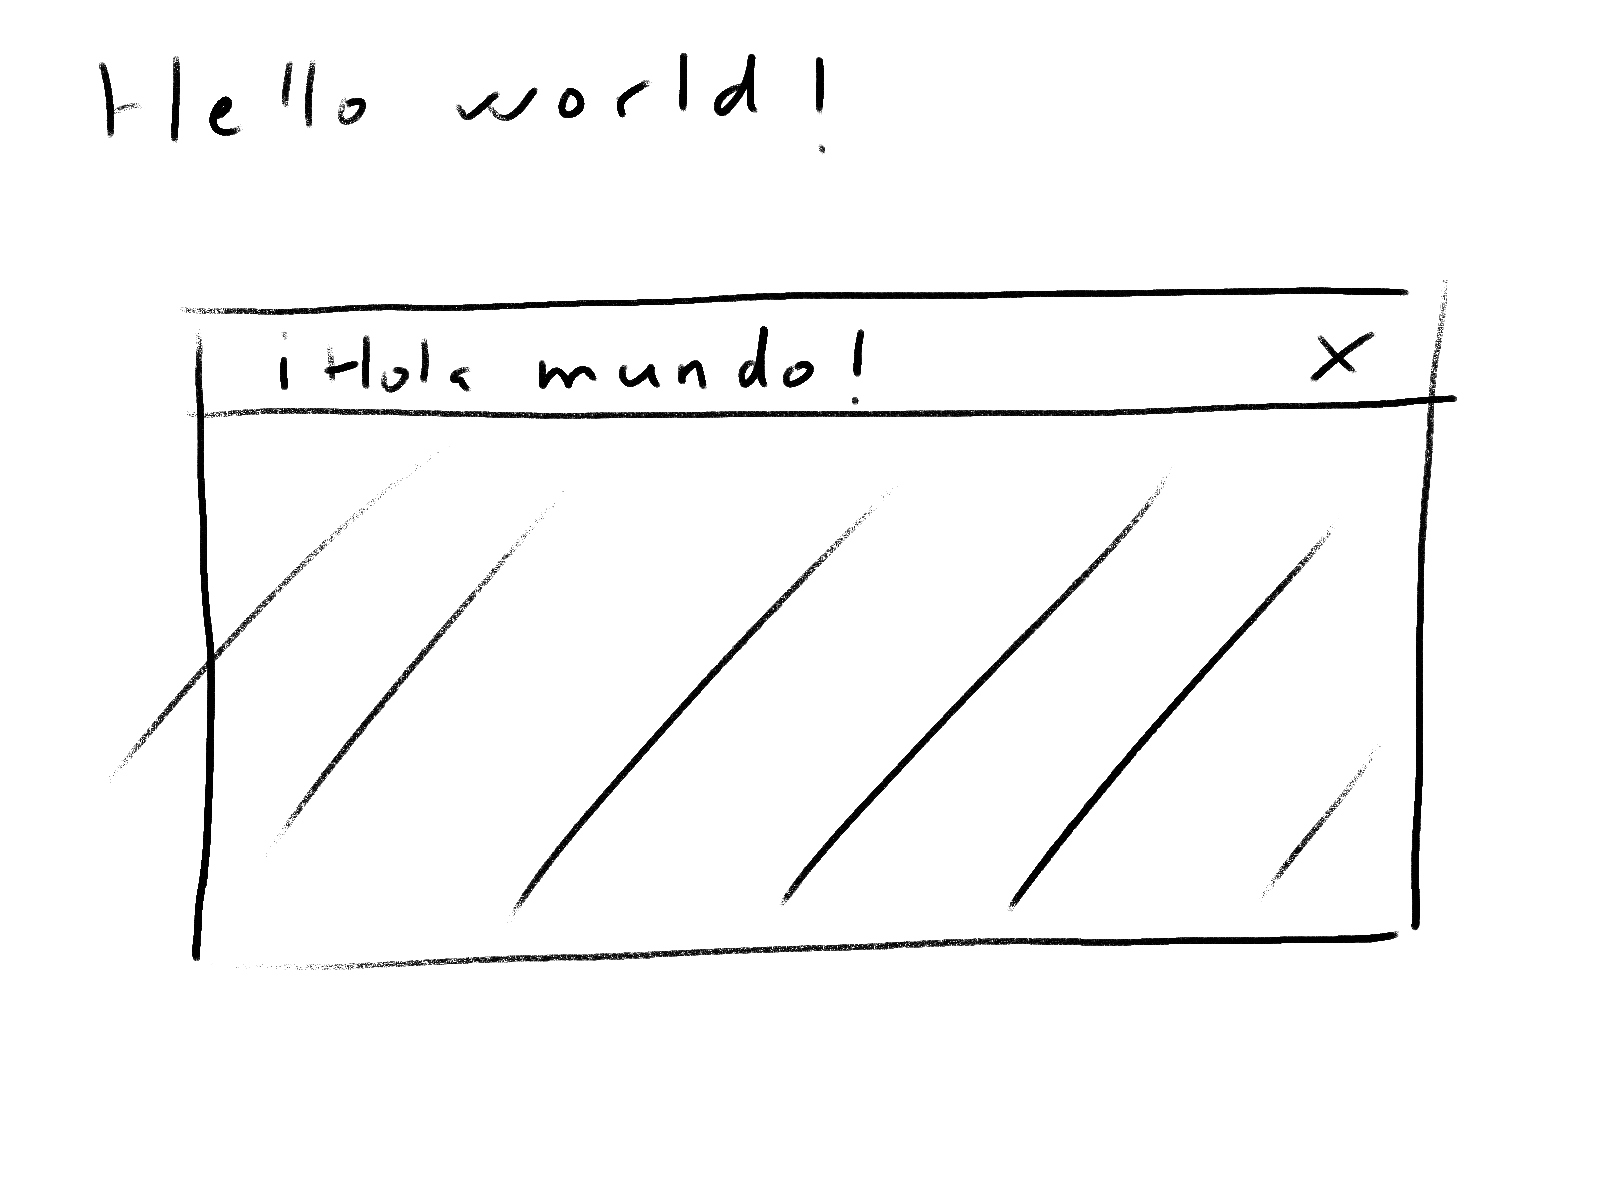 Hello world!
¡Hola mundo! X